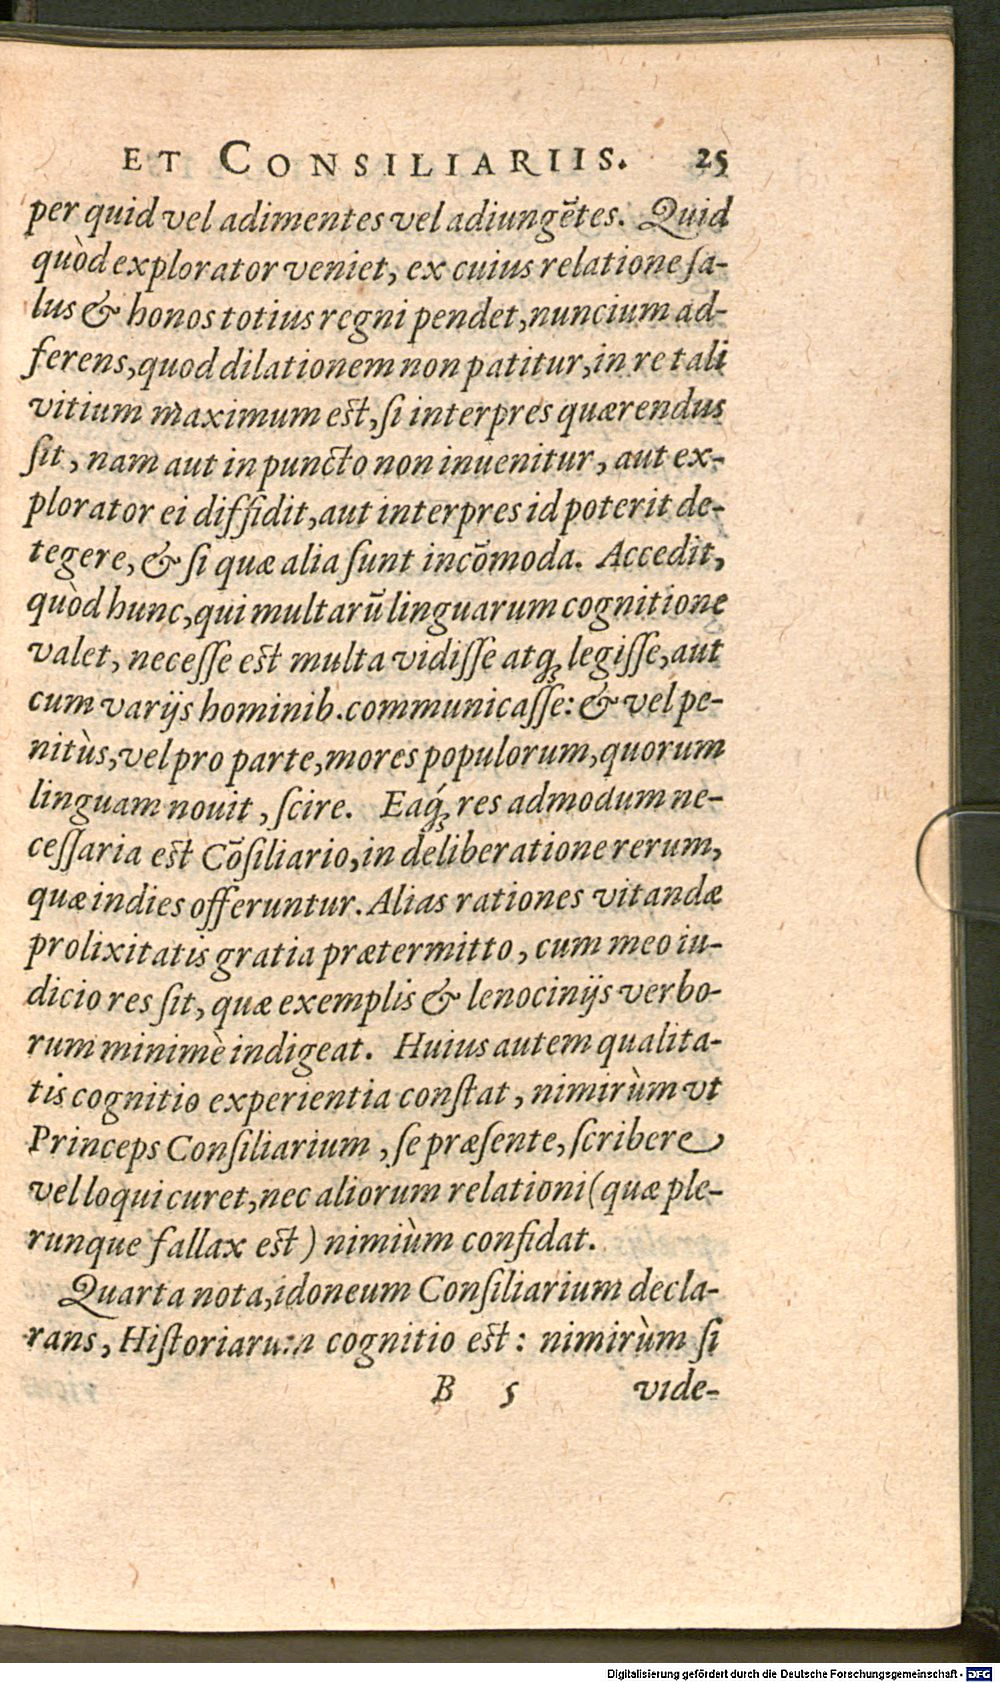 ET CONSILIARIIS. 25
per quid vel adimentes vel adiungẽtes. Quid
quòd explorator veniet, ex cuius relatione ſa-
lus & honos totius regni pendet, nuncium ad-
ferens, quod dilationem non patitur, in re tali
vitium maximum est, ſi interpres quærendus
ſit, nam aut in puncto non inuenitur, aut ex-
plorator ei diffidit, aut interpres id poterit de-
tegere, & ſi quæ alia ſunt incõmoda. Accedit,
quòd hunc, qui multarũ linguarum cognitione
valet, neceſſe est multa vidiſſe atq́; legiſſe, aut
cum varijs hominib. communicaſſe: & vel pe-
nitùs, vel pro parte, mores populorum, quorum
linguam nouit, ſcire. Eaq́; res admodum ne-
ceſſaria est Cõſiliario, in deliberatione rerum,
quæ indies offeruntur. Alias rationes vitandæ
prolixitatis gratia prætermitto, cum meo iu-
dicio res ſit, quæ exemplis & lenocinijs verbo-
rum minimè indigeat. Huius autem qualita-
tis cognitio experientia conſtat, nimirùm vt
Princeps Conſiliarium, ſe præſente, ſcribere
vel loqui curet, nec aliorum relationi (quæ ple-
runque fallax est) nimiùm confidat.
Quarta nota, idoneum Conſiliarium decla-
rans, Hiſtoriarum cognitio est: nimirùm ſi
B 5 vide-
Digitalisierung gefördert durch die Deutsche Forschungsgemeinschaft - DFG